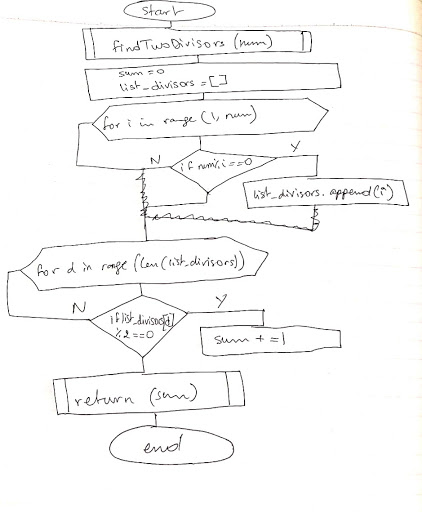 start
findTwoDivisors (num)
sum = 0
list_divisors = []
for i in range (1, num)
N
if num%i==0
Y
list_divisors.append(i)
for d in range (len(list_divisors))
N
if list_divisors[d]
%2==0
Y
sum + =1
return (sum)
end